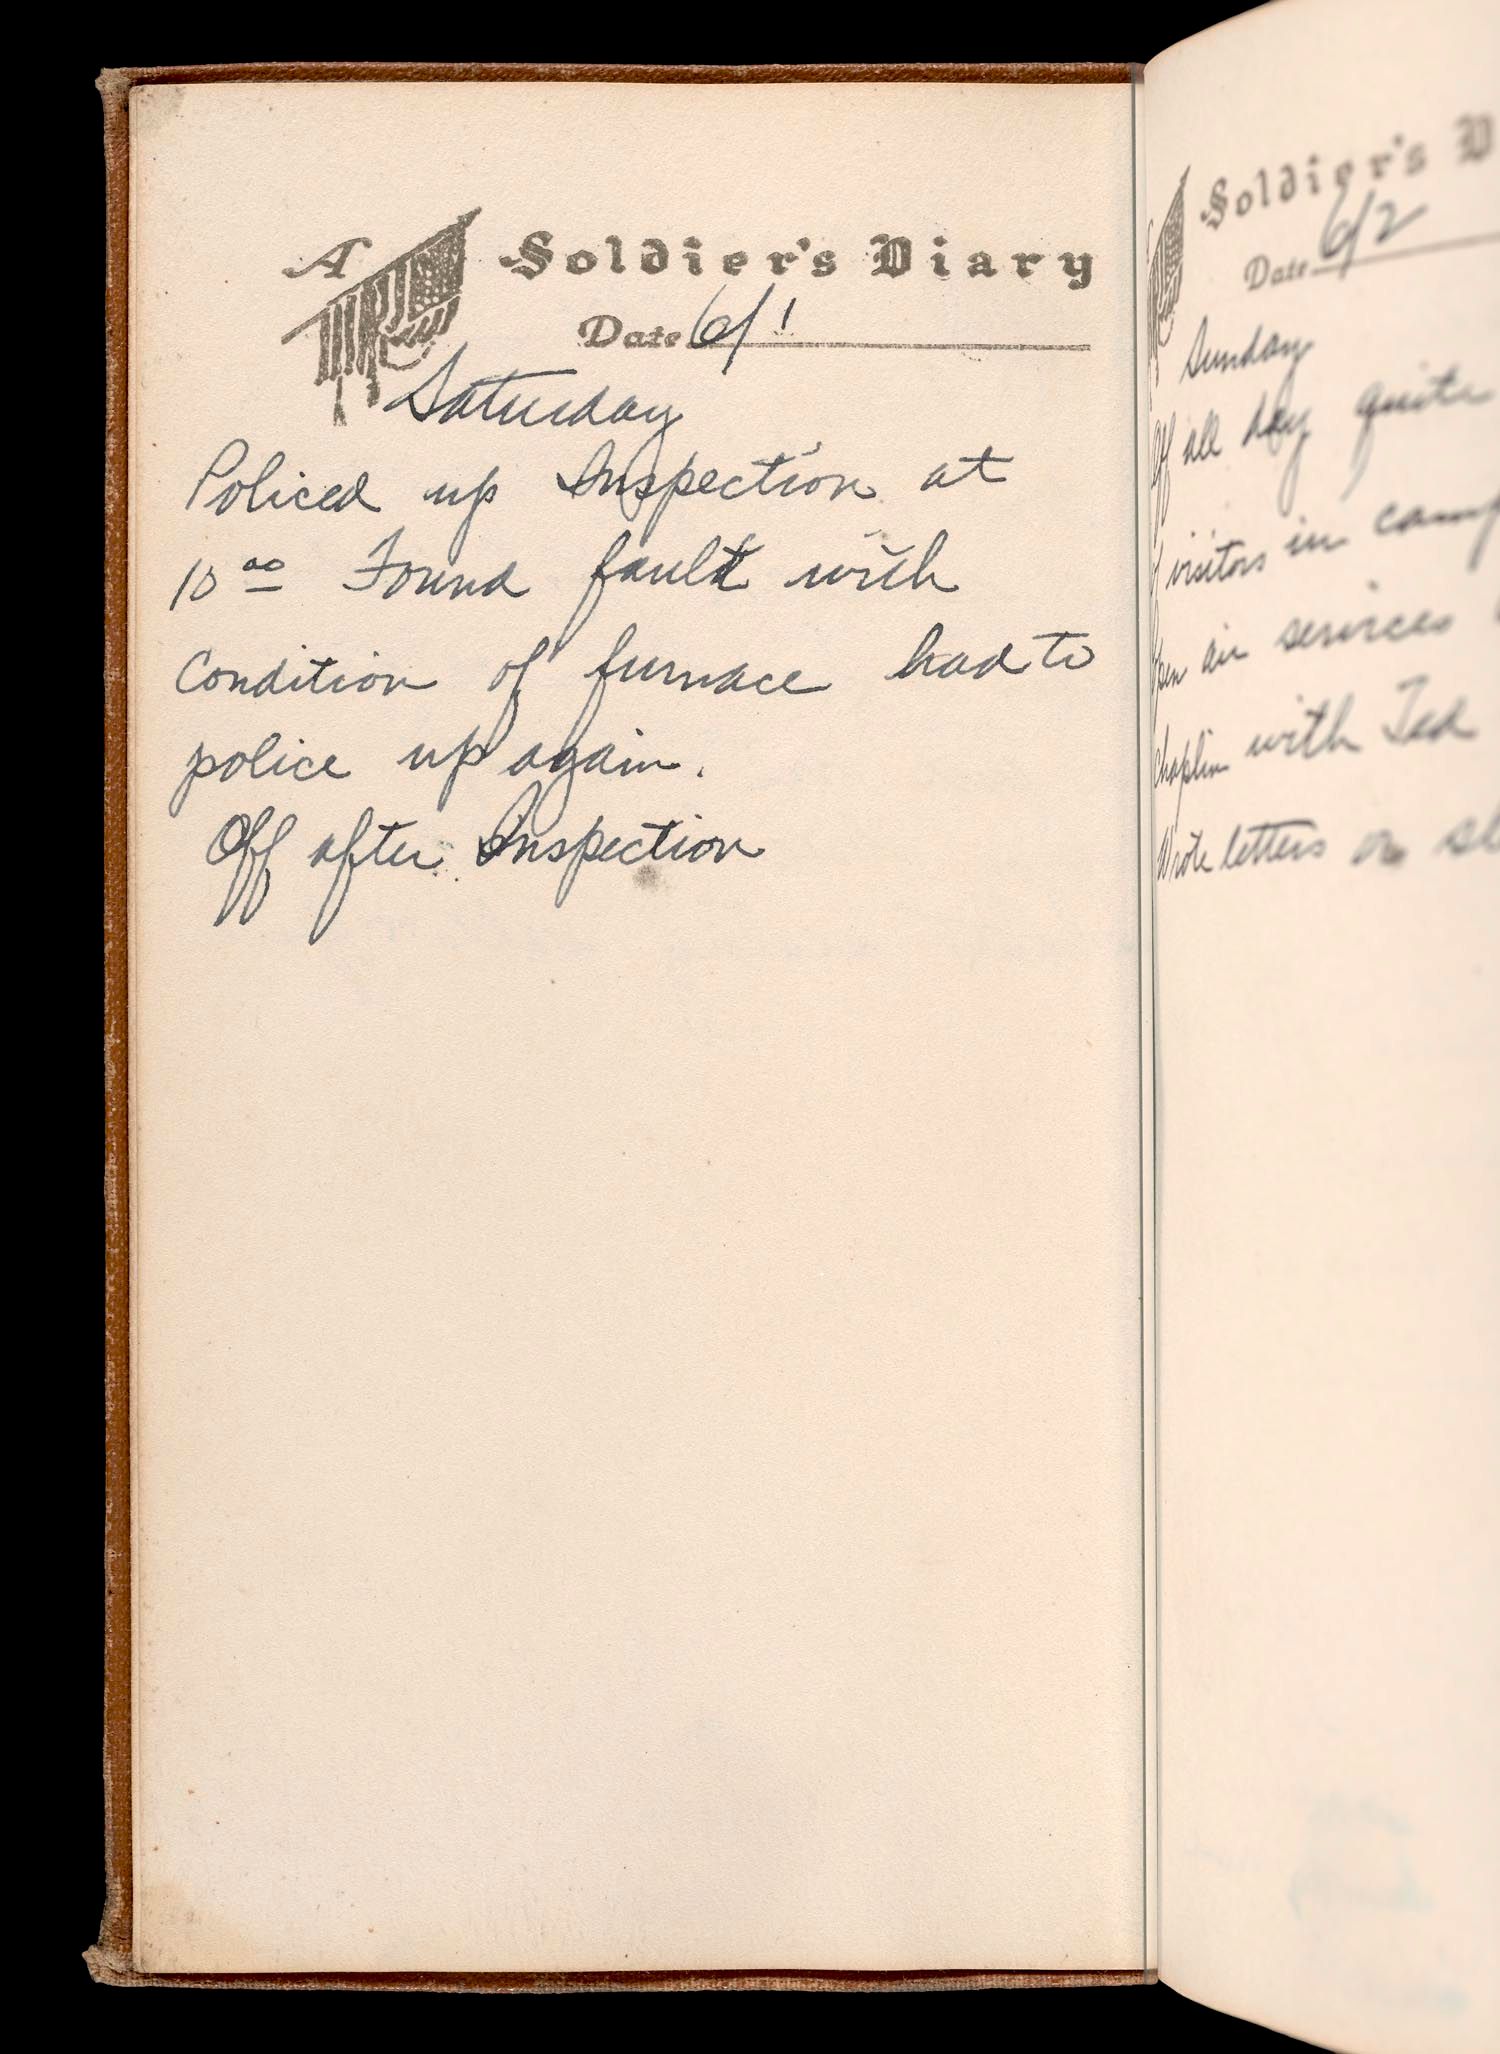 A Soldier's Diary
Date 6/1
Saturday
Policed up Inspection at
10 00 Found fault with
Condition of furnace had to
police up again.
Off after Inspection
Soldier's D
Date 6/2
Sunday
Off all day quite
visitors in camp
Open air services
Chaplin with Ted
Wrote letters